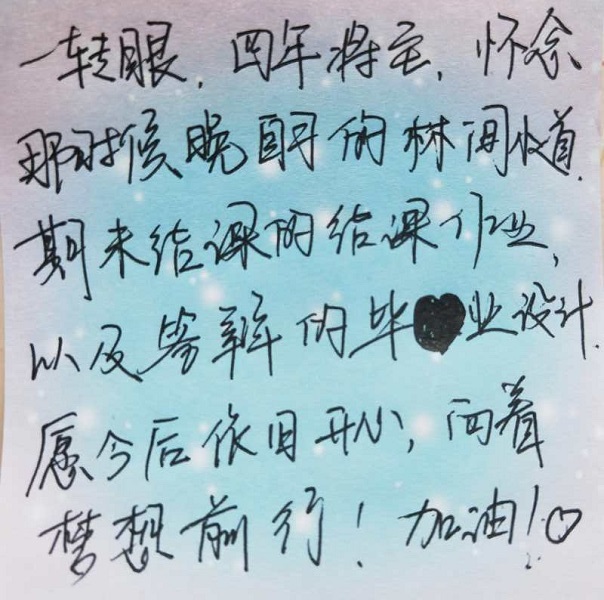 一转眼，四年将至，怀念
那时候晚自习的林间小道，
期末结课的结课作业，
以及答辩的毕业设计.
愿今后依旧开心，向着
梦想前行！加油！